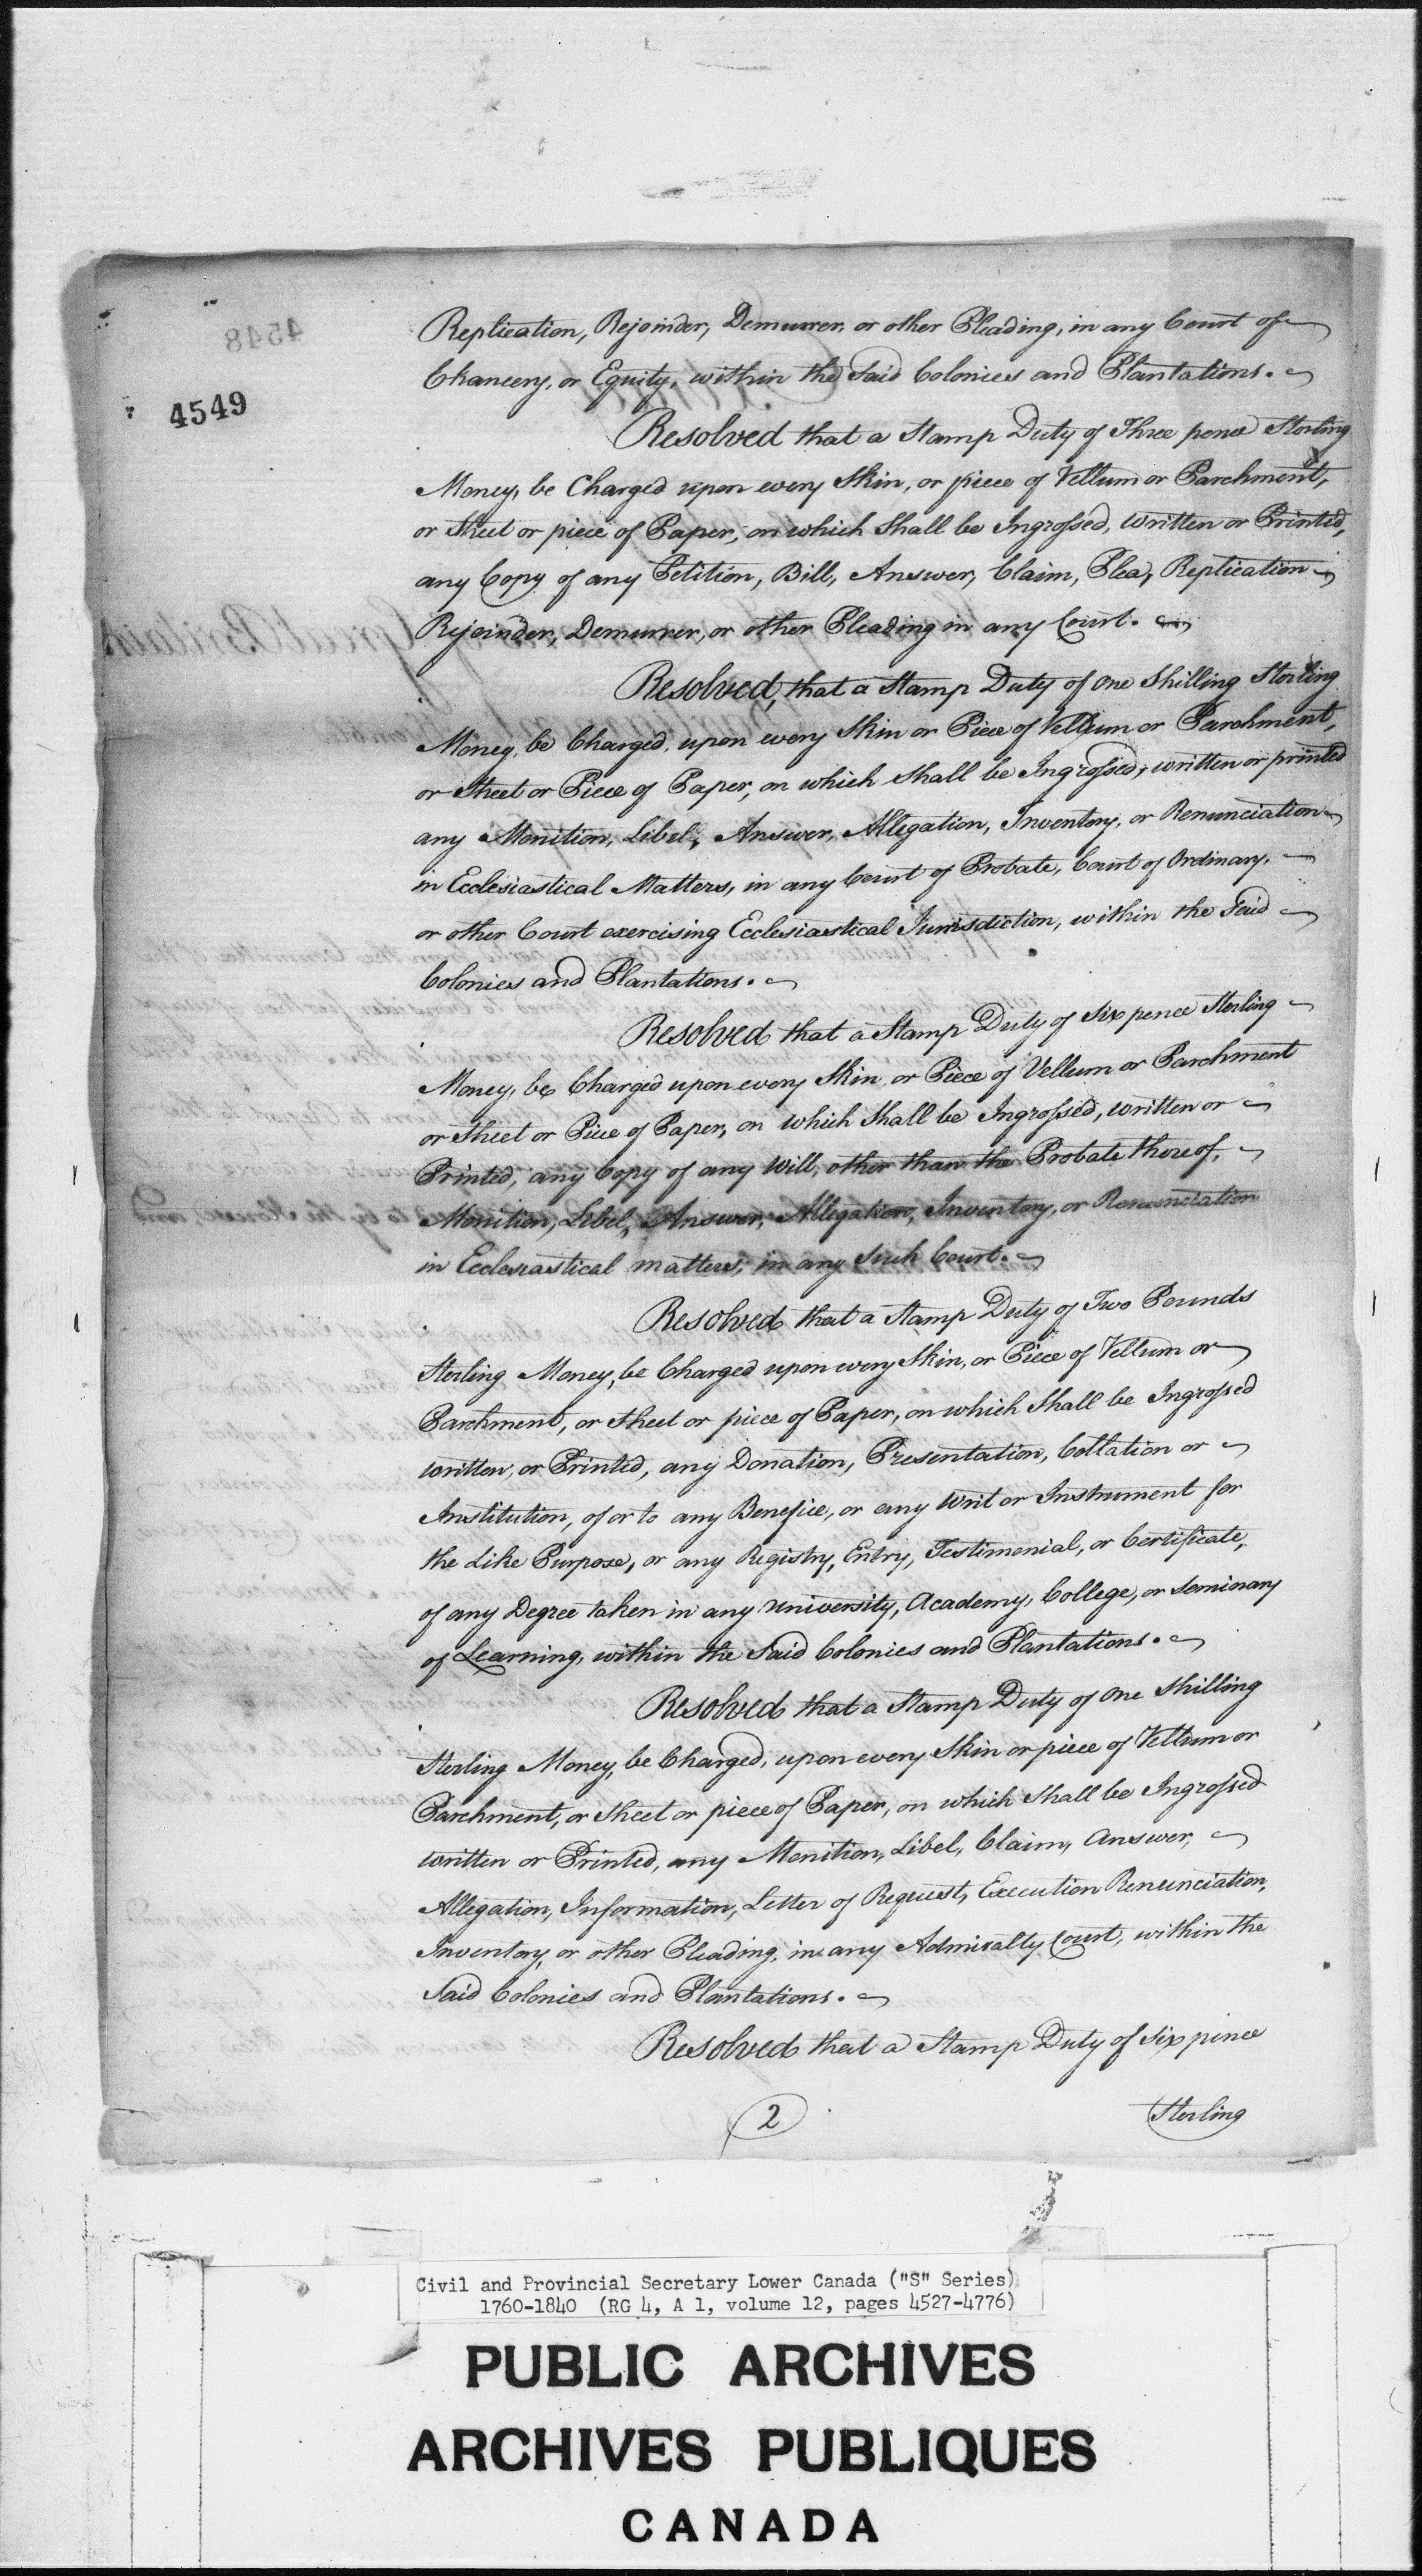 4549
Replication, Rejoinder, Demurrer, or other Pleading, in any Court of
Chancery, or Equity, within the Said Colonies and Plantations.
Resolved that a Stamp Duty of Three pence Sterling
Money, be Charged upon every Skin, or piece of Vellum or Parchment,
or Sheet or piece of Paper, on which Shall be Ingrossed, Written or Printed,
any Copy of any Petition, Bill, Answer, Claim, Plea, Replication
Rejoinder, Demurrer, or other Pleading in any Court.
Resolved, that a Stamp Duty of One Shilling Sterling
Money, be Charged, upon every Skin or Piece of Vellum or Parchment,
or Sheet or Piece of Paper, on which Shall be Ingrossed, written or printed
any Monition, Libel, Answer, Allegation, Inventory, or Renunciation
in Ecclesiastical Matters, in any Court of Probate, Court of Ordinary,
or other Court exercising Ecclesiastical Jurisdiction, within the Said
Colonies and Plantations.
Resolved that a Stamp Duty of Six pence Sterling
Money, be Charged upon every Skin or Piece of Vellum or Parchment
or Sheet or Piece of Paper, on which Shall be Ingrossed, written or
Printed, any Copy of any Will, other than the Probate thereof,
Monition, Libel, Answer, Allegation, Inventory, or Renunciation
in Ecclesiastical matters, in any Such Court.
Resolved that a Stamp Duty of Two Pounds
Sterling Money, be Charged upon every Skin, or Piece of Vellum or
Parchment, or Sheet or piece of Paper, on which Shall be Ingrossed
written, or Printed, any Donation, Presentation, Collation or
Institution, of or to any Benefice, or any Writ or Instrument for
the Like Purpose, or any Registry, Entry, Testimonial, or Certificate,
of any Degree taken in any University, Academy, College, or Seminary
of Learning, within the Said Colonies and Plantations.
Resolved that a Stamp Duty of One Shilling
Sterling Money, be Charged, upon every Skin or piece of Vellum or
Parchment, or Sheet or piece of Paper, on which Shall be Ingrossed
written or Printed, any Monition, Libel, Claim, Answer,
Allegation, Information, Letter of Request, Execution Renunciation,
Inventory, or other Pleading, in any Admiralty Court, within the
Said Colonies and Plantations.
Resolved that a Stamp Duty of Six pence
Sterling
2
Civil and Provincial Secretary Lower Canada ("S" Series)
1760-1840 (RG 4, A 1, volume 12, pages 4527-4776)
PUBLIC ARCHIVES
ARCHIVES PUBLIQUES
CANADA